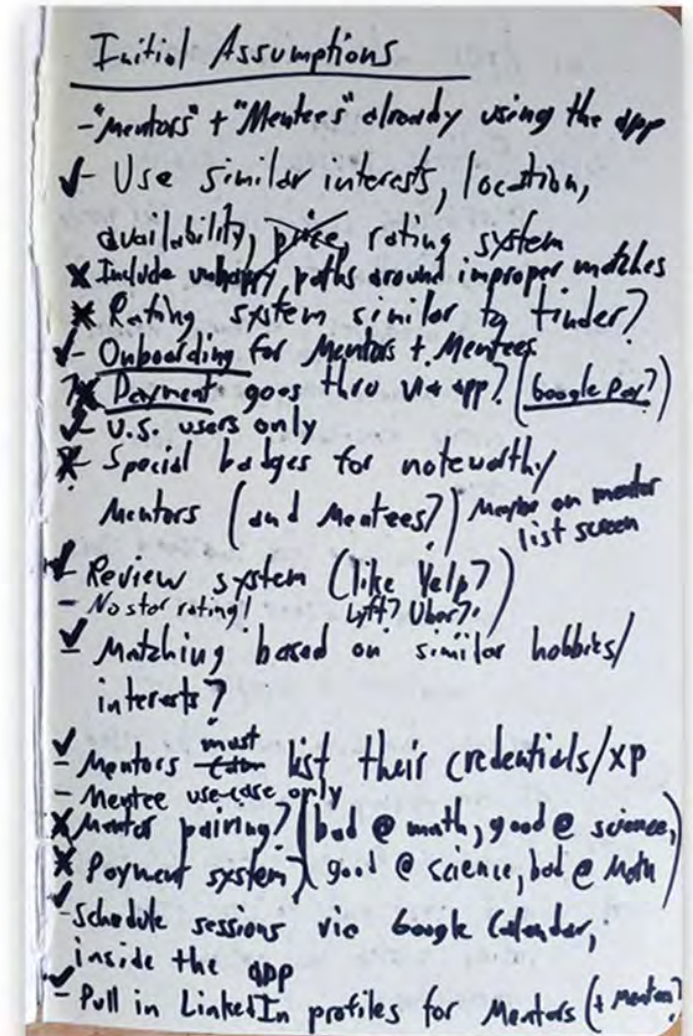 Initial Assumptions
- "Mentors" + "Mentees" already using the app
✓- Use similar interests, location,
availability, price, rating system
x Include unhappy paths around improper matches
x Rating system similar to tinder?
✓- Onboarding for Mentors + Mentees
?x Payment goes thru via app? (Google Pay?)
✓- U.S. users only
x- Special badges for noteworthy
Mentors (and Mentees?) Maybe on mentor
list screen
✓- Review system (like Yelp?)
- No star rating! Lyft? Uber?
✓- Matching based on similar hobbies/
interests?
✓- Mentors must list their credentials/XP
- Mentee use-case only
x Mentor pairing? (bad @ math, good @ science,
x Payment system? good @ science, bad @ Math)
✓- Schedule sessions via Google Calendar,
inside the app
✓- Pull in LinkedIn profiles for Mentors (+ Mentees?